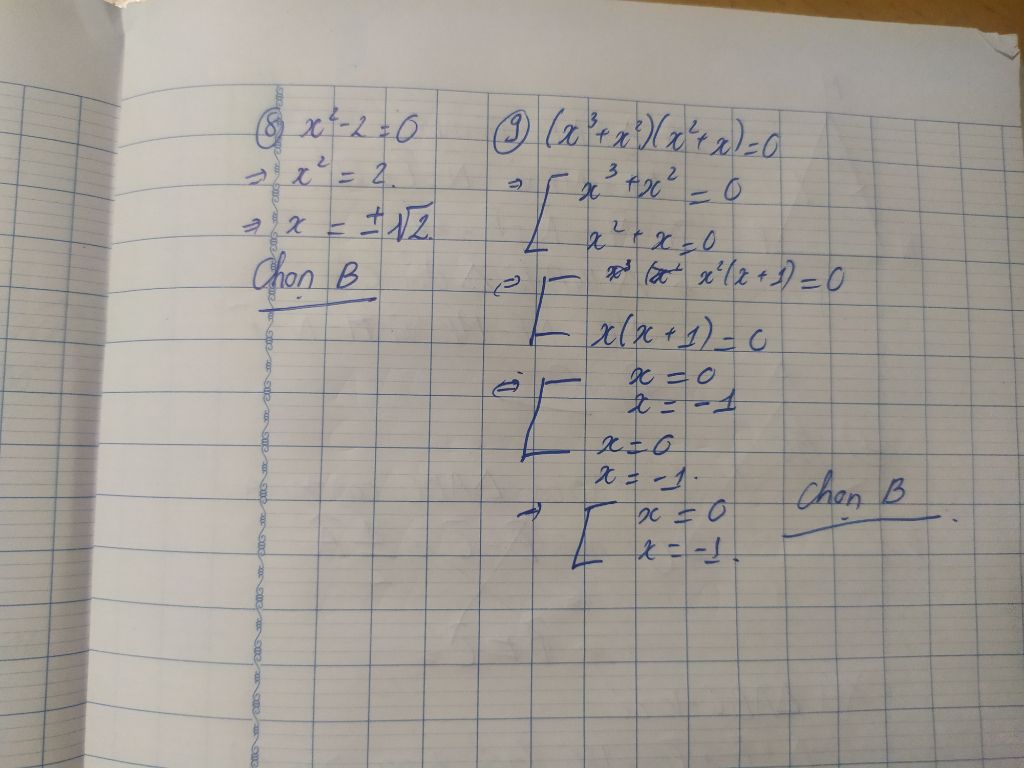 ⑧ x² - 2 = 0
⇒ x² = 2.
⇒ x = ±√2.
Chọn B
⑨ (x³ + x²)(x² + x) = 0
⇒ [ x³ + x² = 0
x² + x = 0
⇔ [ x²(x + 1) = 0
x(x + 1) = 0
⇔ [ x = 0
x = -1
x = 0
x = -1.
→ [ x = 0
x = -1.
Chọn B.